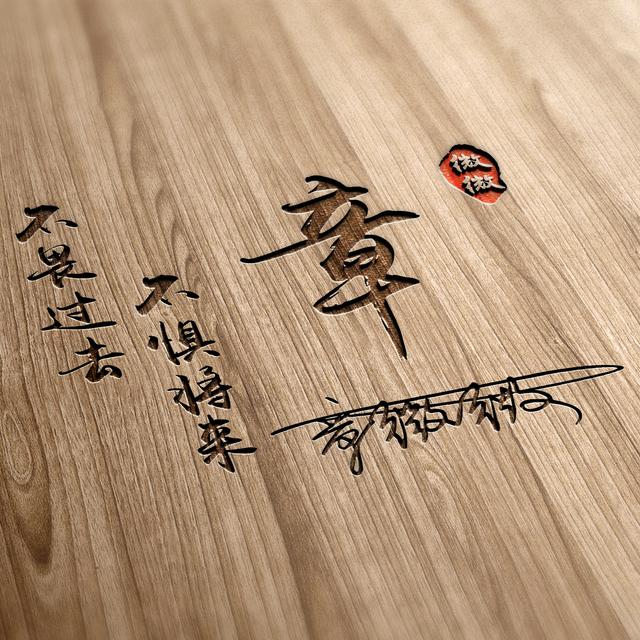 不畏过去
不惧将来
章
微微
章微微